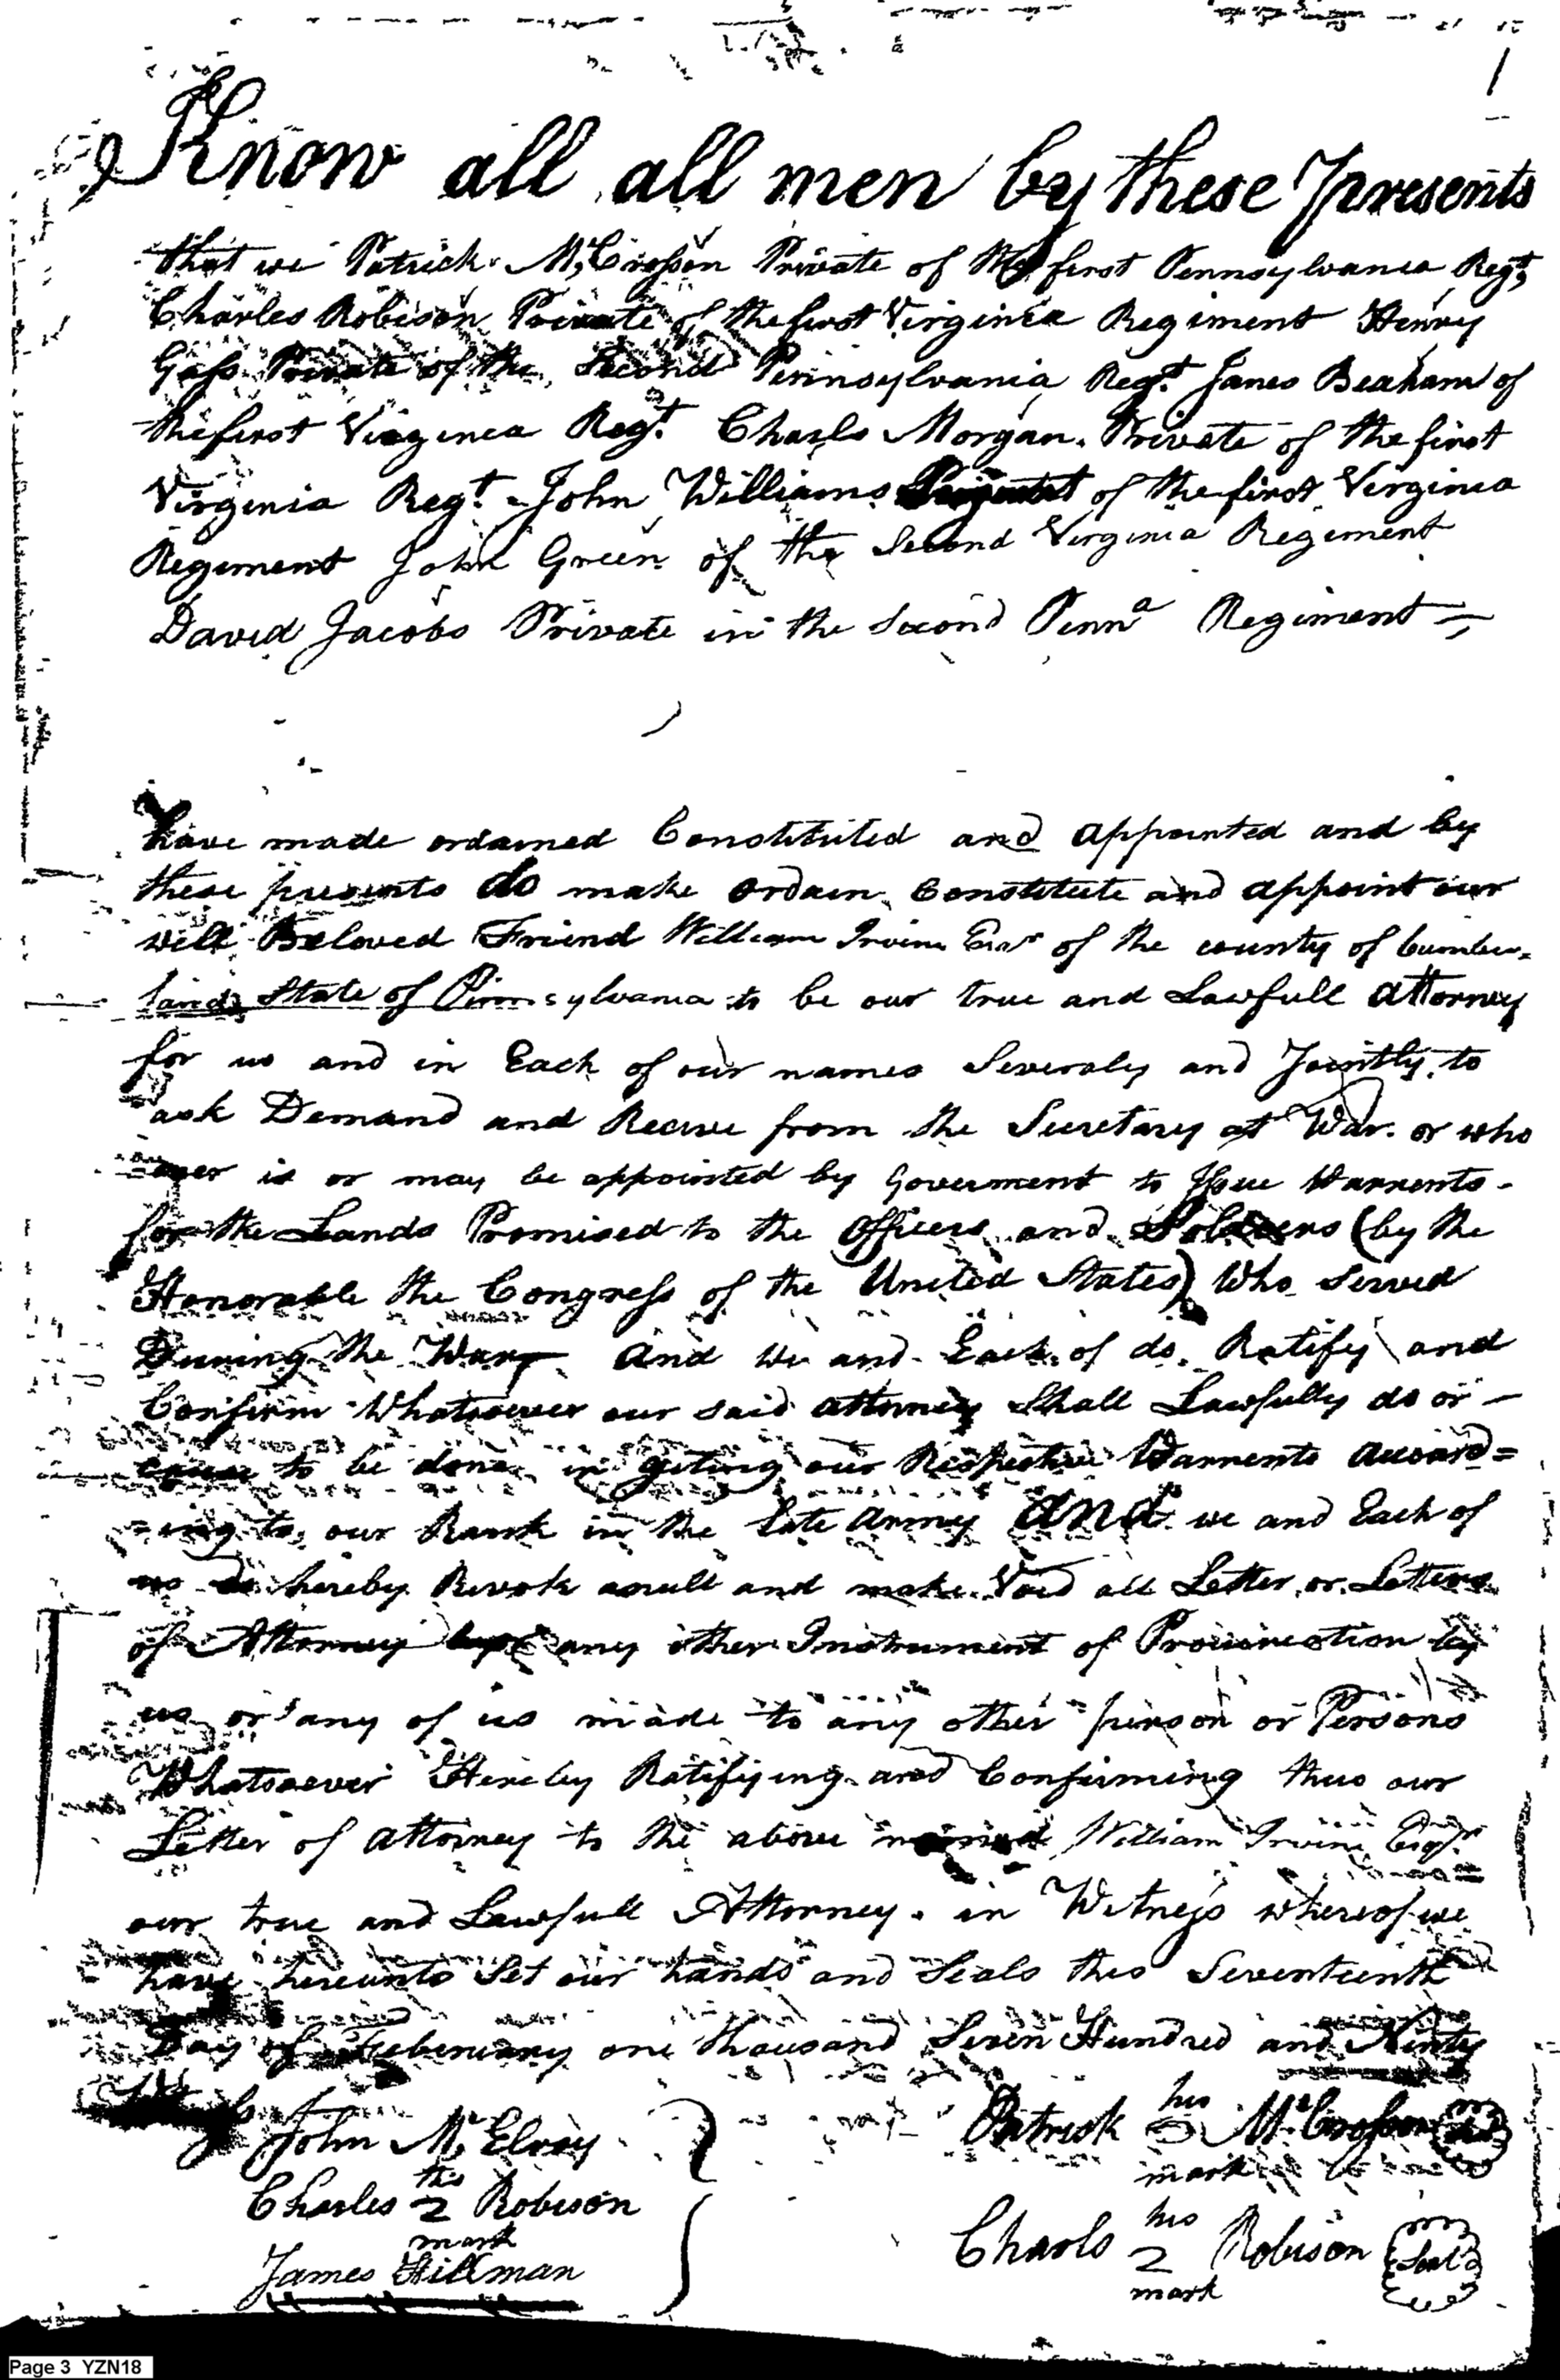 Know all all men by these presents
that we Patrick McCrossen Private of the first Pennsylvania Regt,
Charles Robison Private of the first Virginia Regiment Henry
Gass Private of the Second Pennsylvania Regt. James Beaham of
the first Virginia Regt. Charls Morgan. Private of the first
Virginia Regt. John Williams of the first Virginia
Regiment John Green of the Second Virginia Regiment
David Jacobs Private in the Second Penna Regiment
have made ordained Constituted and appointed and by
these presents do make ordain Constitute and appoint our
well Beloved Friend William Irvine Esqr of the county of Cumber-
land, State of Pennsylvania to be our true and Lawfull attorney
for us and in Each of our names Severaly and Jointly to
ask Demand and Receive from the Secretary at War. or who
ever is or may be appointed by Goverment to Issue Warrents-
for the Lands Promised to the Officers and Soldiers (by the
Honorable the Congress of the United States) Who Served
During the War, and we and Each of do. Ratify and
Confirm Whatsoever our said attorney Shall Lawfully do or -
cause to be done in geting our Respective Warrents accord=
=ing to our Rank in the late army and we and Each of
us do hereby Revok anull and make Void all Letter or Letters
of Attorney any other Instrument of Procuration by
us or any of us made to any other person or Persons
Whatsoever Hereby Ratifying and Confirming this our
Letter of attorney to the above named William Irvine Esqr.
our true and Lawfull Attorney. in Witness whereof we
have hereunto Set our hands and Seals this Seventeenth
Day of Feberuary one thousand Seven Hundred and Ninty
John McElroy
Patrick his mark McCrossen
Charles his 2 mark Robison
Charls his 2 mark Robison Seal
James Hillman
Page 3 YZN18